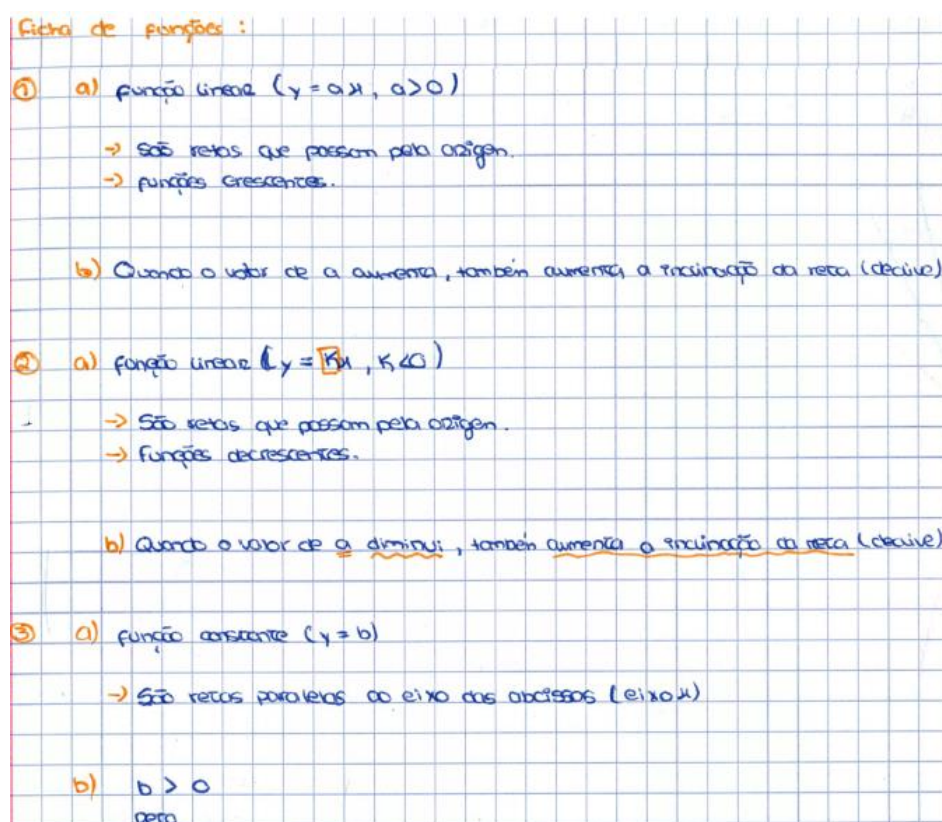 Ficha de funções :
① a) função linear (y = ax, a>0)
→ São retas que passam pela origem.
→ funções crescentes.
b) Quando o valor de a aumenta, também aumenta a inclinação da reta (declive)
② a) função linear (y = Kx, K<0)
→ São retas que passam pela origem.
→ Funções decrescentes.
b) Quando o valor de a diminui, também aumenta a inclinação da reta (declive)
③ a) função constante (y = b)
→ São retas paralelas ao eixo das abcissas (eixo x)
b) b > 0